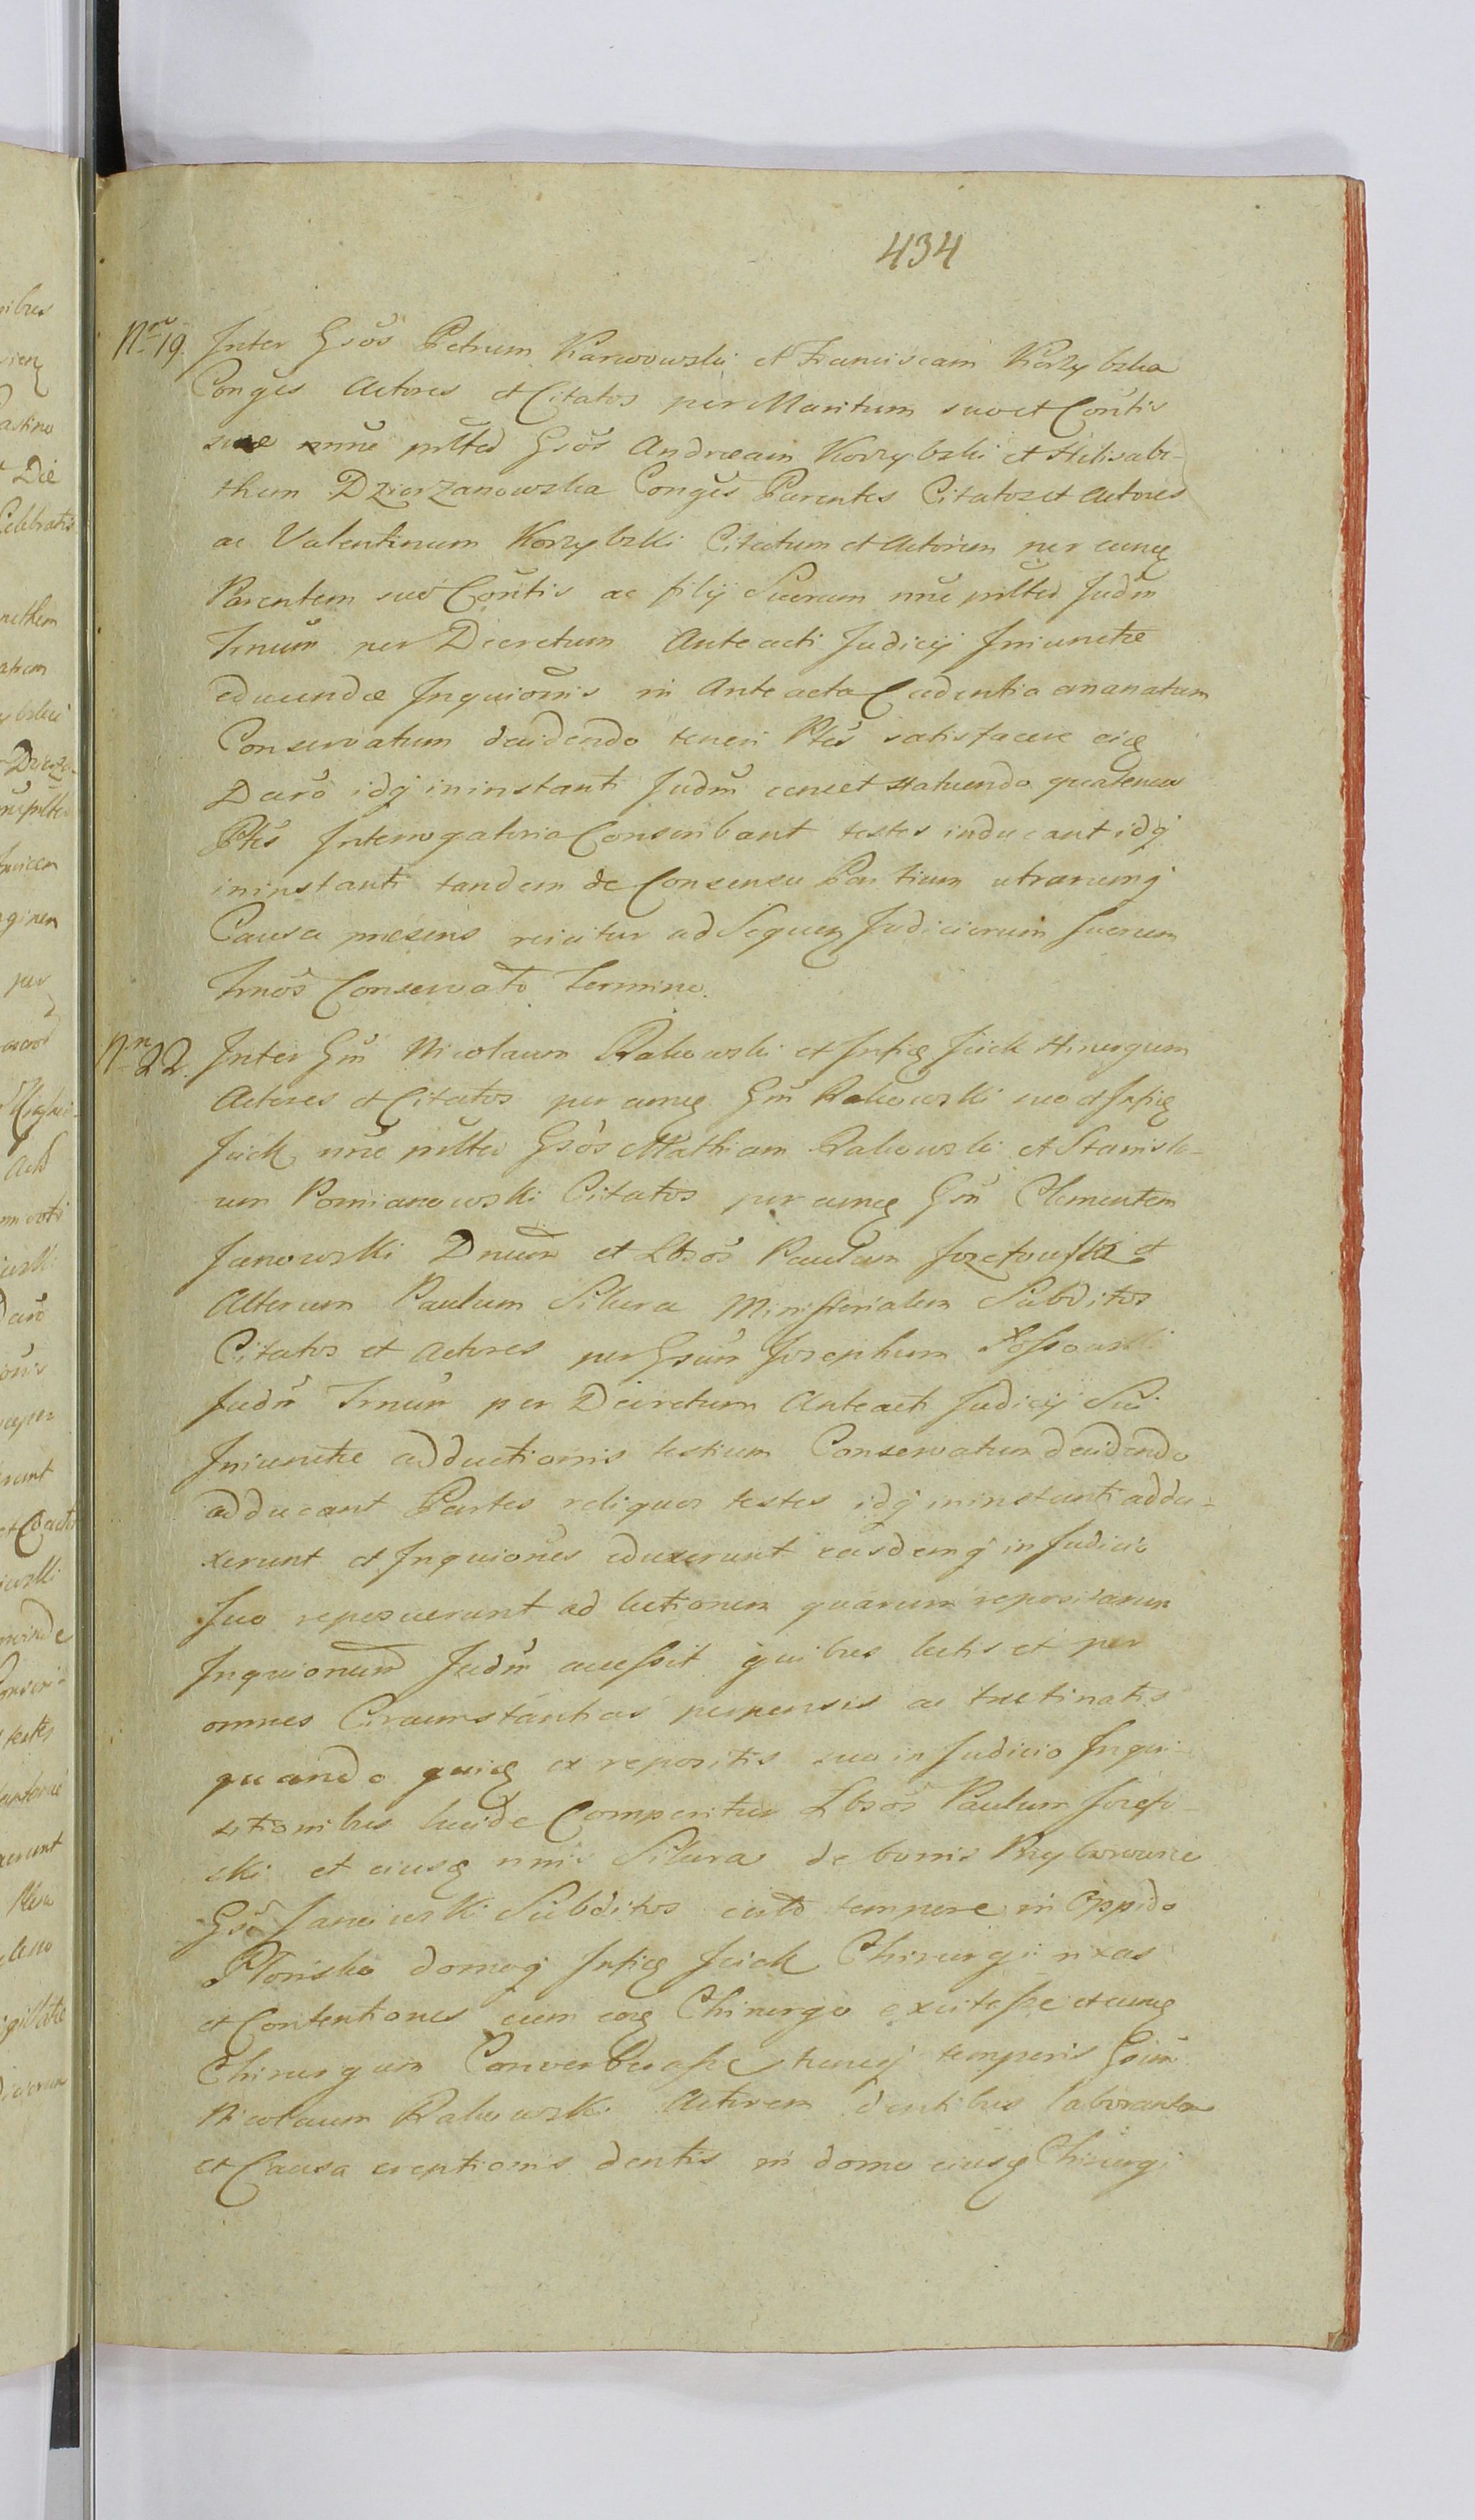 434
Nro 19. Inter Gsos Petrum Karwowski et Franciscam Korzybska
Conges Actores et Citatos per Maritum suo et Contis
suae nnne prlted Gsos Andream Korzybski et Helisabe-
tham Dzierzanowska Conges Parentes Citatos et Actores
ac Valentinum Korzybski Citatum et Actorem per eumq
Parentem suo Contis ac filij Suorum nne prlted Judm
Trnum per Decretum Anteacti Judicij Iniunctae
educendae Inquionis in Anteacta Cadentia emanatum
Conservatum decidendo teneri Ptes satisfacere eiq
Decro idq ininstanti Judm censet statuendo quatenus
Ptes Interrogatoria Conscribant testes inducant idq
ininstanti tandem de Consensu Partium utrarumq
Causa praesens reicitur ad Sequen Judiciorum Suorum
Trnos Conservato Termino.
Nro 22. Inter Gm Nicolaum Rakowski et Infiq Jcick Hirurgum
Actores et Citatos per eumq Gm Rakowski suo et Infiq
Jcick nne prlted Gsos Mathiam Rakowski et Stanisla-
um Pomianowski Citatos per eumq Gm Clementem
Janowski Dnum et Lbsos Paulum Jozefowski et
Alterum Paulum Sikura Ministerialem Subditos
Citatos et Actores per Gsum Josephum
Judm Trnum per Decretum Anteacti Judicij Sui
Iniunctae adductionis testium Conservatum decidendo
adducant Partes reliquos testes idq ininstanti addu-
xerunt et Inquiones eduxerunt easdemq in Judicio
Suo reposuerunt ad lectionem quarum repositarum
Inquionum Judm accessit quibus lectis et per
omnes Circumstantias perpensis ac trutinatis
quando quiq ex repositis suo in Judicio Inqui-
sitionibus lucide Comperitur Lbsos Paulum Jozefo
ski et eiusq nnis Sikura de bonis Przyborowice
Gsi Janowski Subditos certo tempore in Oppido
Plonsko domoq Infiq Jcick Chirurgi rixas
et Contentiones cum eoq Chirurgo excitasse et eumq
Chirurgum Converberasse huncq temporis Gsum
Nicolaum Rakowski Actorem dentibus laborantem
et Causa ereptionis dentis in domo eiusq Chirurgi